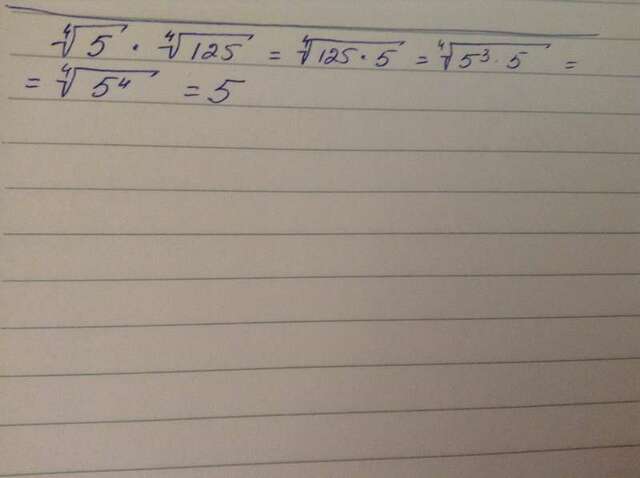 ⁴√5 · ⁴√125 = ⁴√125·5 = ⁴√5³·5 =
= ⁴√5⁴ = 5